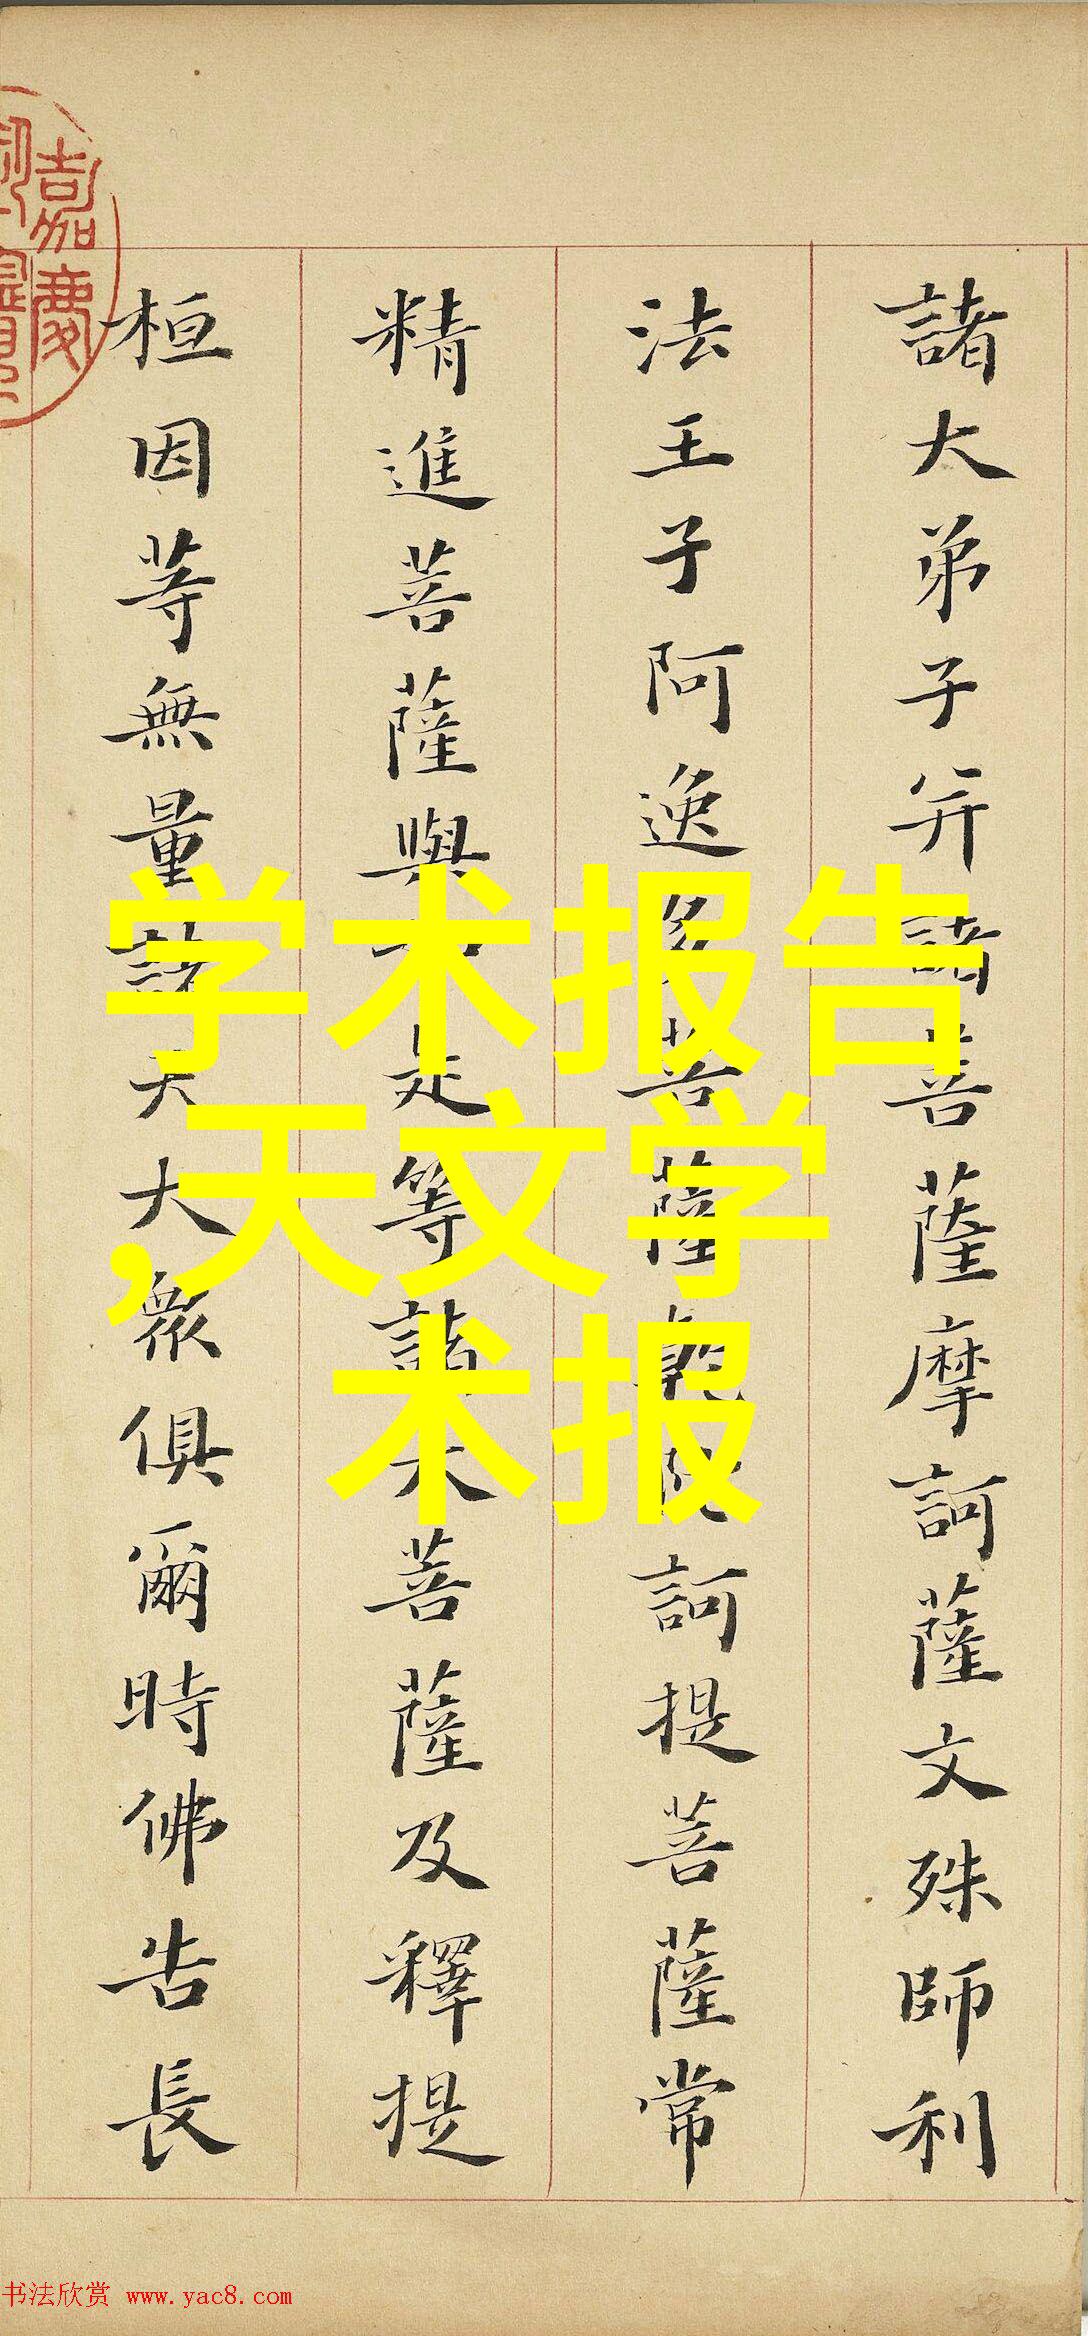 諸大弟子并諸菩薩摩訶薩文殊師利
法王子阿逸多菩薩乾陀訶提菩薩常
精進菩薩與如是等諸大菩薩及釋提
桓因等無量諸天大衆俱爾時佛告長
学术报告
,天文学
术报
嘉慶
书法欣赏 www.yac8.com